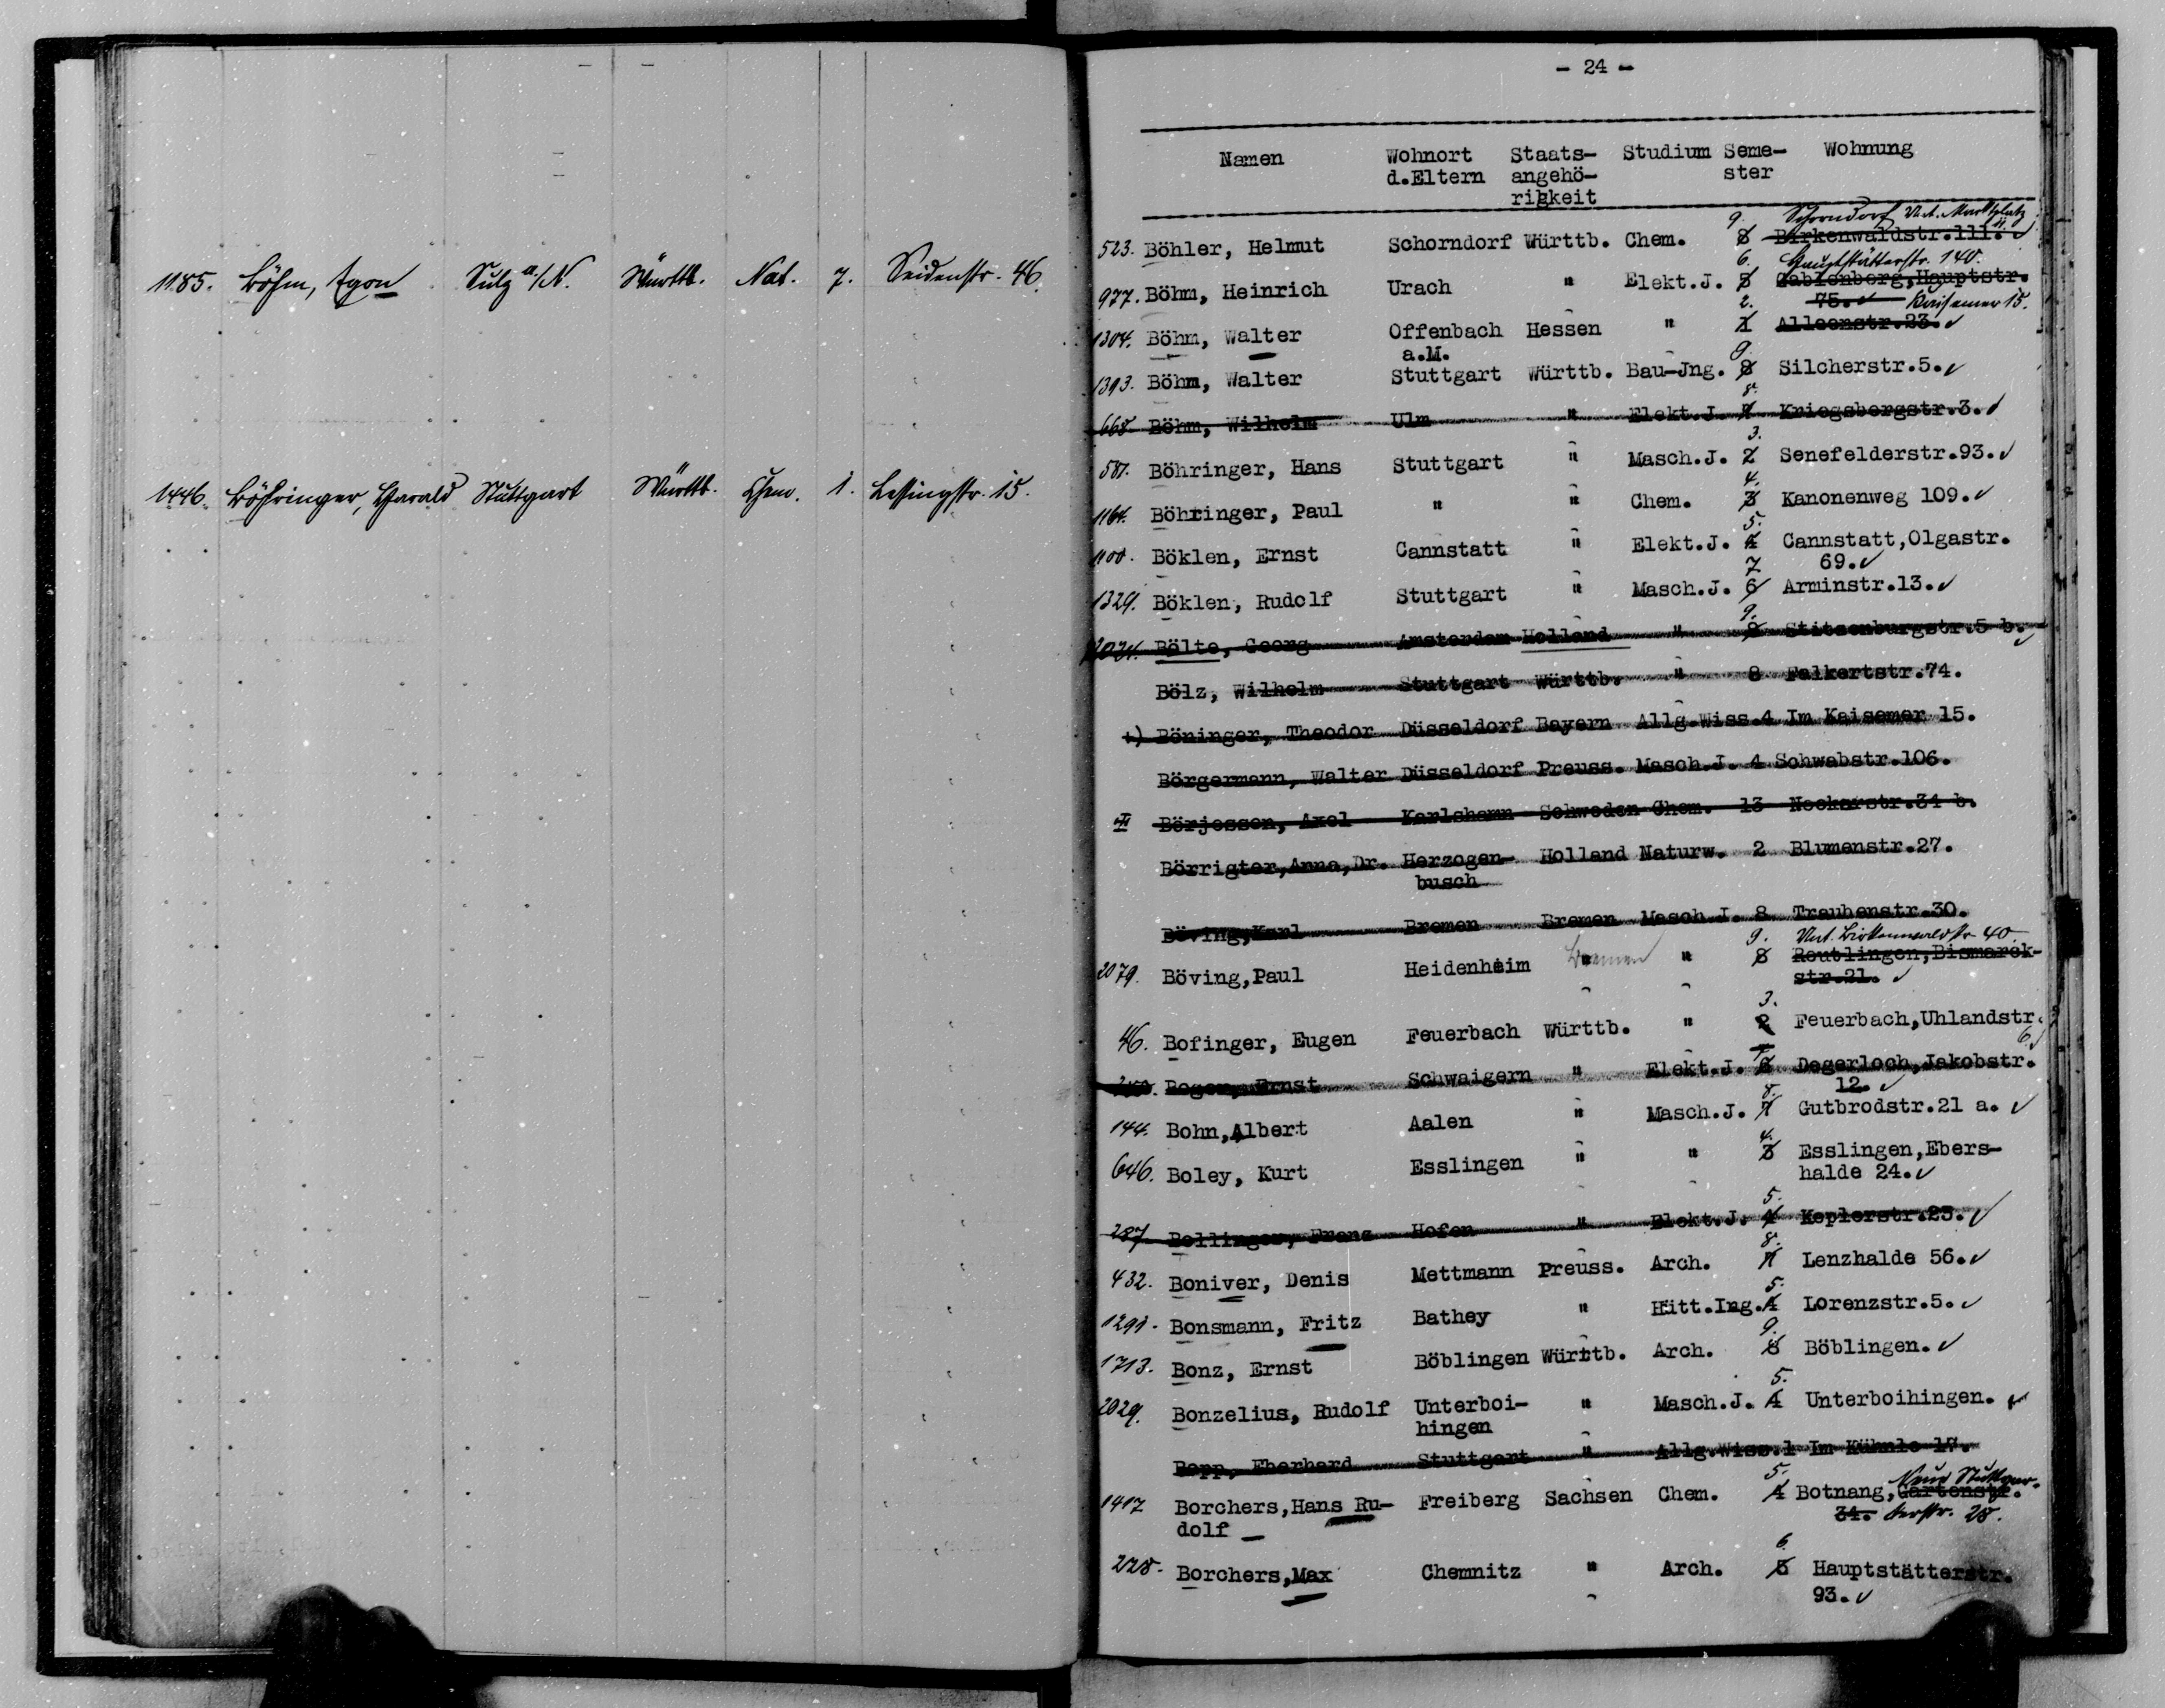 1185. Böhm, Egon Sulz a/N. Württb. Nat. 7. Seidenstr. 46.
1446. Böhringer, Harald Stuttgart Württb. Chem. 1. Lessingstr. 15.
- 24 -
Namen Wohnort Staats- Studium Seme- Wohnung
d.Eltern angehö- ster
rigkeit
9. Schorndorf Unt. Marktplatz
523. Böhler, Helmut Schorndorf Württb. Chem. 8 Birkenwaldstr.111.
6. Hauptstätterstr. 140.
977. Böhm, Heinrich Urach " Elekt.J. 5 Gablenberg,Hauptstr.
2. 75. Kaisemer 15.
1304. Böhm, Walter Offenbach Hessen " 1 Alleenstr.23.
a.M. 9.
1393. Böhm, Walter Stuttgart Württb. Bau-Jng. 8 Silcherstr.5.
8.
668. Böhm, Wilhelm Ulm " Elekt.J. 7 Kriegsbergstr.3.
3.
581. Böhringer, Hans Stuttgart " Masch.J. 2 Senefelderstr.93.
4.
1164. Böhringer, Paul " " Chem. 3 Kanonenweg 109.
5.
1100. Böklen, Ernst Cannstatt " Elekt.J. 4 Cannstatt,Olgastr.
7 69.
1329. Böklen, Rudolf Stuttgart " Masch.J. 6 Arminstr.13.
9.
Bölte, Georg Amsterdam Holland " 8 Stitzenburgstr.5 b.
Bölz, Wilhelm Stuttgart Württb. " 8 Falkertstr.74.
+) Böninger, Theodor Düsseldorf Bayern Allg.Wiss.4 Im Kaisemer 15.
Börgermann, Walter Düsseldorf Preuss. Masch.J. 4 Schwabstr.106.
Börjesson, Axel Karlshamn Schweden Chem. 13 Neckarstr.34 b.
Börrigter,Anna,Dr. Herzogen- Holland Naturw. 2 Blumenstr.27.
busch
Böving,Karl Bremen Bremen Masch.J. 8 Traubenstr.30.
9. Unt. Birkenwaldstr. 40.
2079. Böving,Paul Heidenheim Bremen " 8 Reutlingen,Bismarck-
str.21.
3.
46. Bofinger, Eugen Feuerbach Württb. " 2 Feuerbach,Uhlandstr.
6.
Bogen, Ernst Schwaigern " Elekt.J. 6 Degerloch,Jakobstr.
8. 12.
144. Bohn,Albert Aalen " Masch.J. 7 Gutbrodstr.21 a.
4.
646. Boley, Kurt Esslingen " " 3 Esslingen,Ebers-
halde 24.
5.
287 Bollinger, Franz Hofen " Elekt.J. 4 Keplerstr.23.
8.
432. Boniver, Denis Mettmann Preuss. Arch. 7 Lenzhalde 56.
5.
1291. Bonsmann, Fritz Bathey " Hütt.Ing.4 Lorenzstr.5.
9.
1713. Bonz, Ernst Böblingen Württb. Arch. 8 Böblingen.
5.
2029. Bonzelius, Rudolf Unterboi- " Masch.J. 4 Unterboihingen.
hingen
Bopp, Eberhard Stuttgart " Allg.Wiss.1 Im Kühnle 17.
5. Neue Stuttgar-
1417 Borchers,Hans Ru- Freiberg Sachsen Chem. 4 Botnang,Gartenstr.
dolf 34. terstr. 28.
6.
228. Borchers,Max Chemnitz " Arch. 5 Hauptstätterstr.
93.